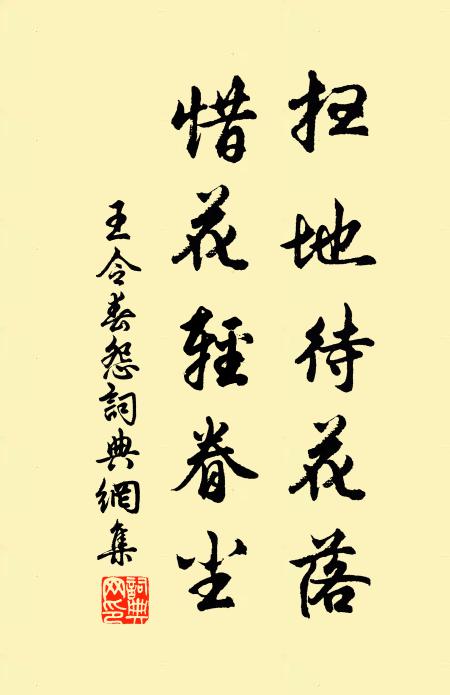 扫地待花落
惜花輕眷尘
王令春怨詞典網集
詞典网印